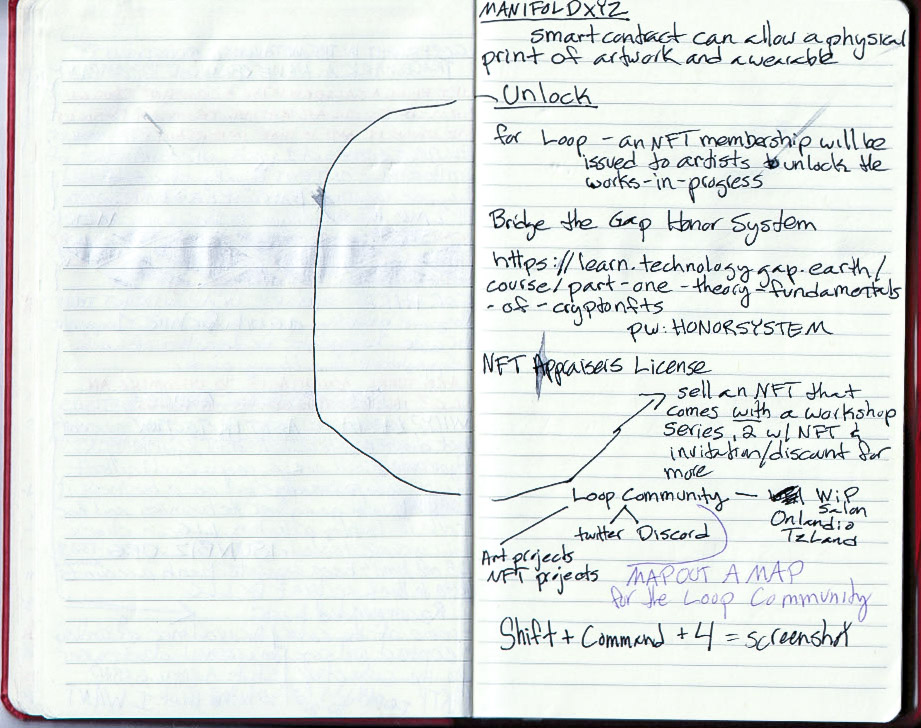 MANIFOLDXYZ
smart contact can allow a physical
print of artwork and a wearable
Unlock
for Loop - an NFT membership will be
issued to artists to unlock the
works-in-progress
Bridge the Gap Honor System
https://learn.technology.gap.earth/
course/part-one-theory-fundamentals
-of-cryptonfts
pw: HONORSYSTEM
NFT Appraisers License
sell an NFT that
comes with a workshop
series, 2 w/ NFT &
invitation/discount for
more
Loop Community — WiP
Salon
Onlandio
TzLand
twitter Discord
Art projects
NFT projects
MAP OUT A MAP
for the Loop Community
Shift + Command + 4 = screenshot